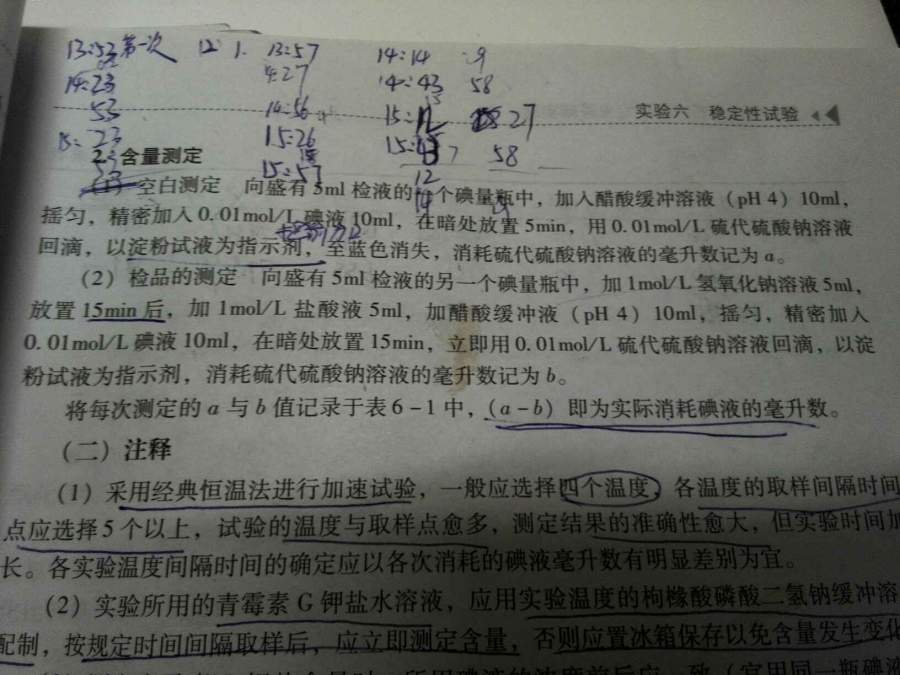 13:53 第一次 12 1. 13:57 14:14 :9
14:23 4:27 14:43 58
53 14:56 15:12 27
15:23 15:26 58
实验六 稳定性试验
2. 含量测定
15:57 12
(1) 空白测定 向盛有5ml检液的一个碘量瓶中，加入醋酸缓冲溶液（pH 4）10ml，
摇匀，精密加入0.01mol/L碘液10ml，在暗处放置5min，用0.01mol/L硫代硫酸钠溶液
回滴，以淀粉试液为指示剂，至蓝色消失，消耗硫代硫酸钠溶液的毫升数记为a。
（2）检品的测定 向盛有5ml检液的另一个碘量瓶中，加1mol/L氢氧化钠溶液5ml，
放置15min后，加1mol/L盐酸液5ml，加醋酸缓冲液（pH 4）10ml，摇匀，精密加入
0.01mol/L碘液10ml，在暗处放置15min，立即用0.01mol/L硫代硫酸钠溶液回滴，以淀
粉试液为指示剂，消耗硫代硫酸钠溶液的毫升数记为b。
将每次测定的a与b值记录于表6-1中，（a-b）即为实际消耗碘液的毫升数。
（二）注释
（1）采用经典恒温法进行加速试验，一般应选择四个温度，各温度的取样间隔时间
点应选择5个以上，试验的温度与取样点愈多，测定结果的准确性愈大，但实验时间加
长。各实验温度间隔时间的确定应以各次消耗的碘液毫升数有明显差别为宜。
（2）实验所用的青霉素G钾盐水溶液，应用实验温度的枸橼酸磷酸二氢钠缓冲溶
配制，按规定时间间隔取样后，应立即测定含量，否则应置冰箱保存以免含量发生变化